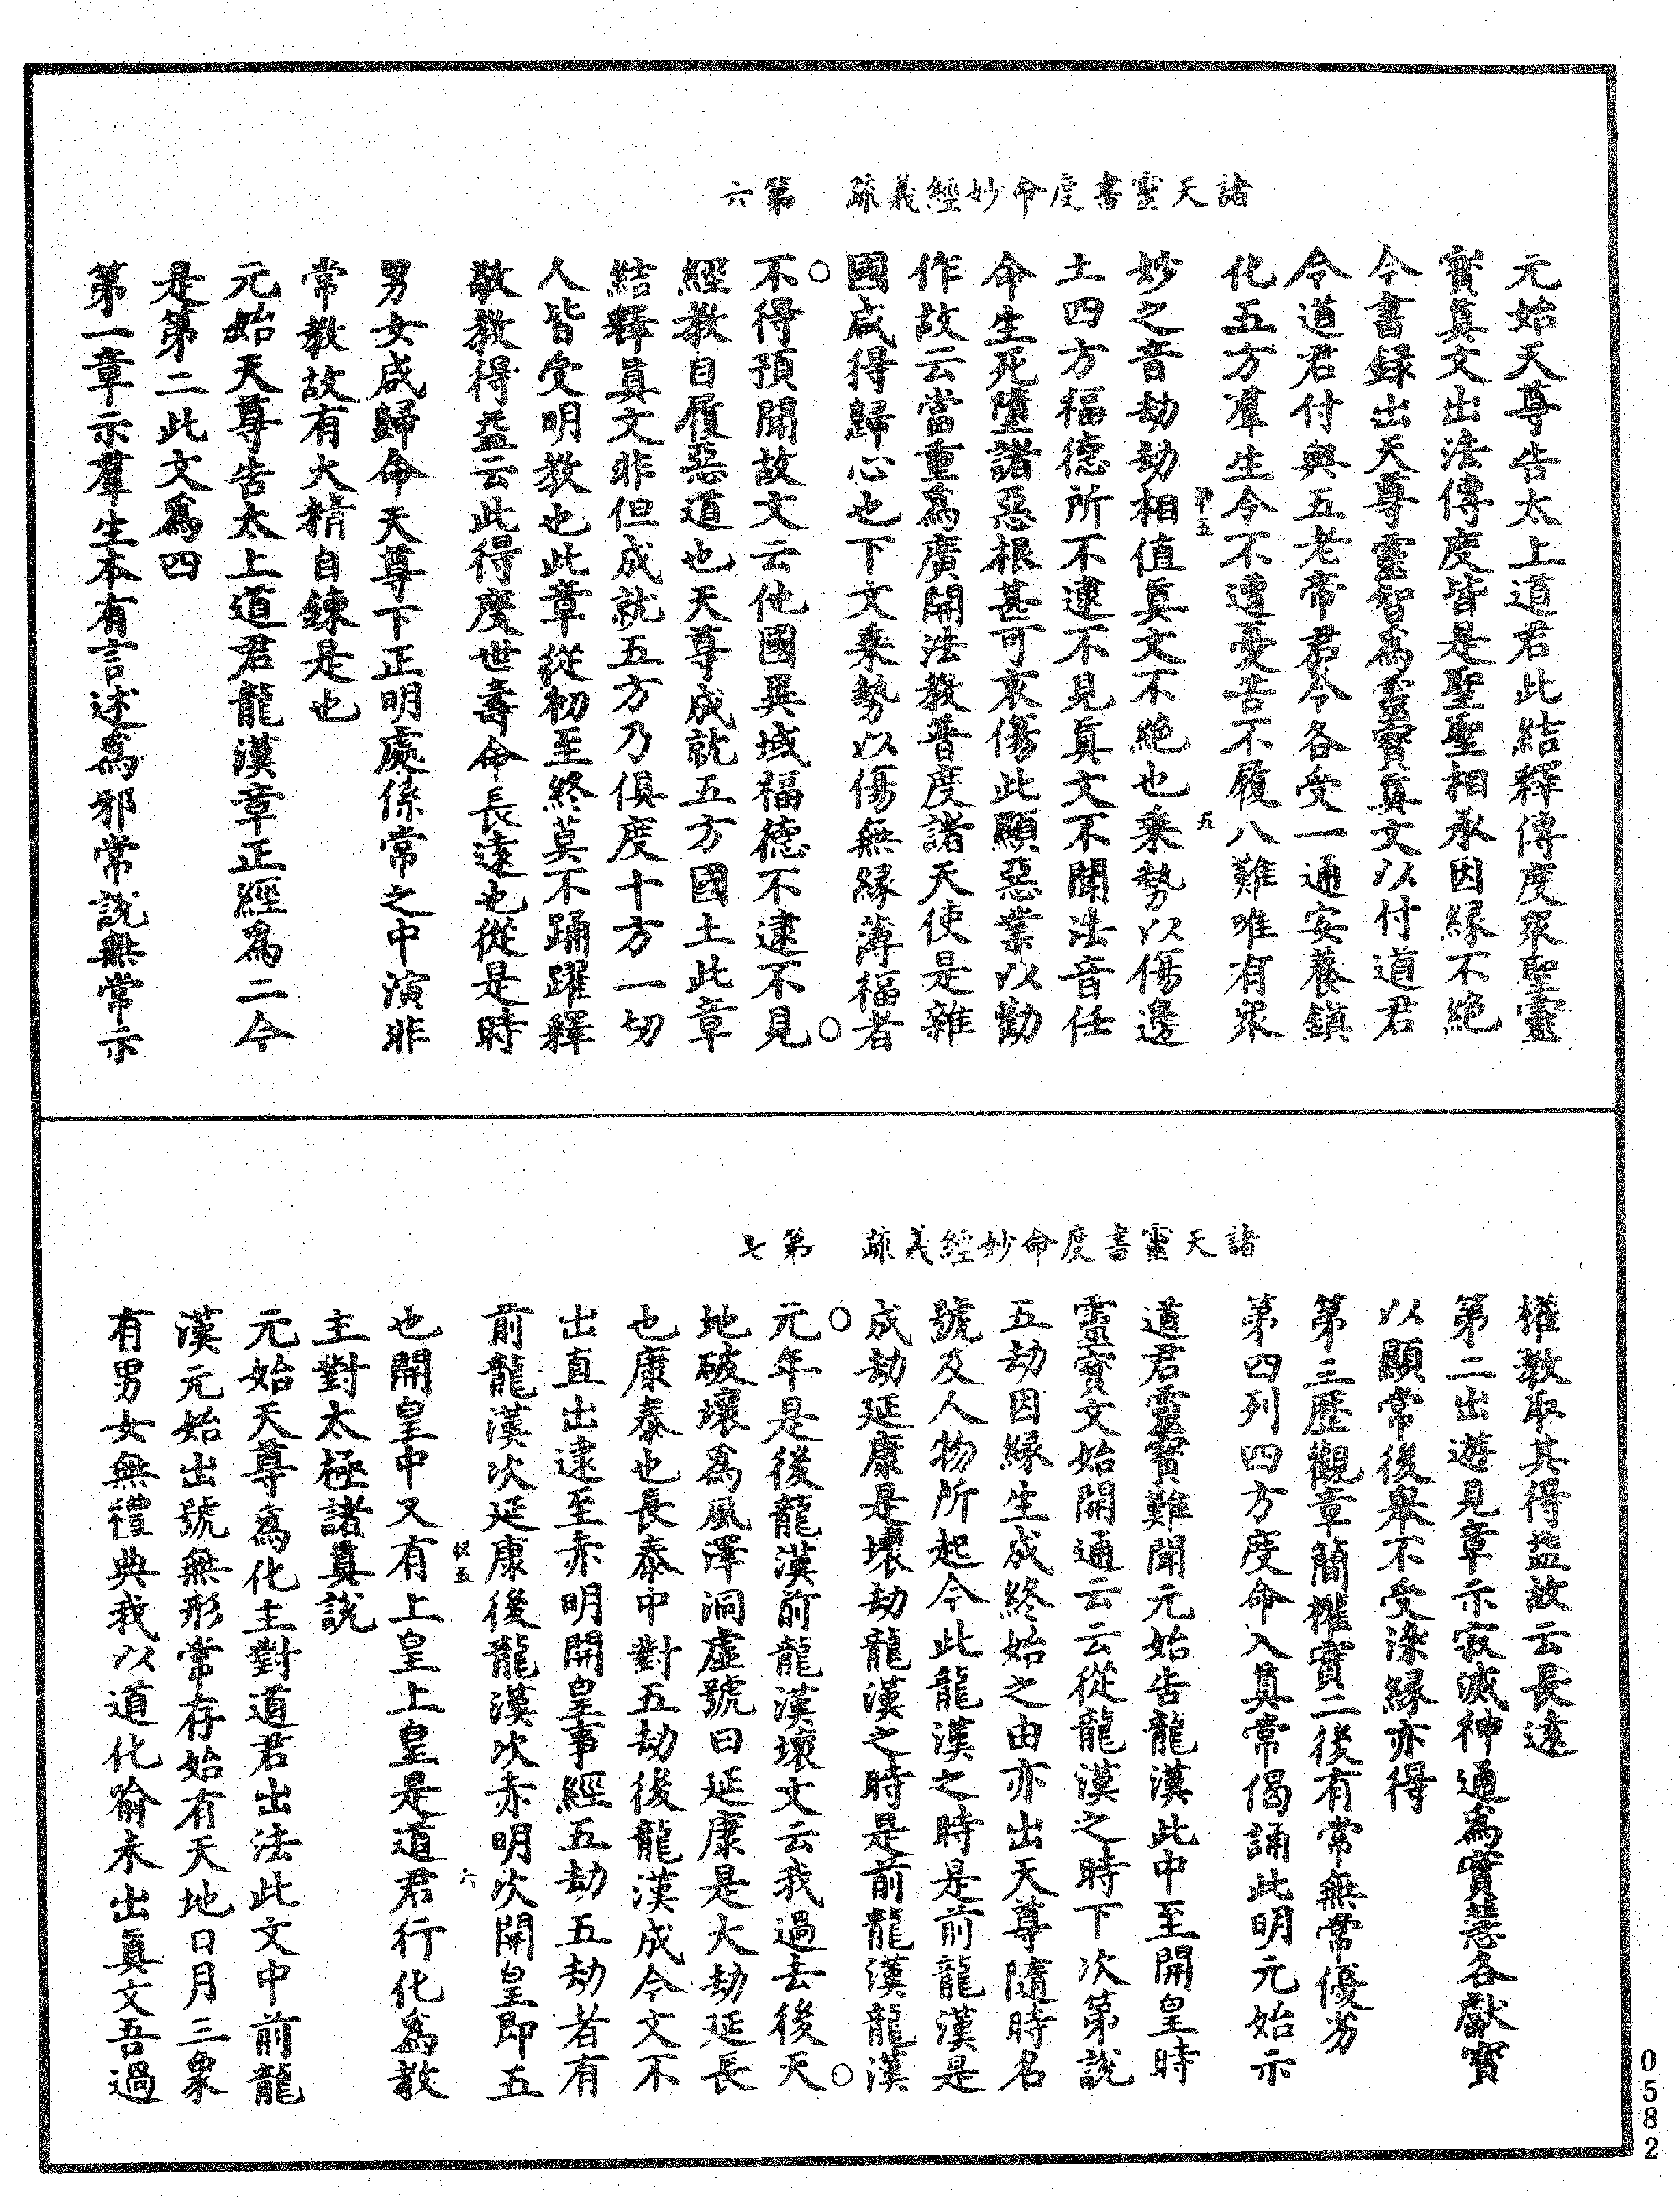 諸天靈書度命妙經義疏　第六
元始天尊告太上道君此結釋傳度眾聖靈
寶真文出法傳度皆是聖聖相承因緣不絕
今書録出天尊靈智為靈寶真文以付道君
令道君付與五老帝君令各受一通安養鎮
化五方羣生令不遭憂苦不履八難唯有眾
妙之音劫劫相值真文不絕也乘勢以傷邊
土四方福德所不逮不見真文不聞法音任
命生死墮諸惡根甚可哀傷此顯惡業以勸
作故云當重為廣開法教普度諸天使是雜
國咸得歸心也下文乘勢以傷無緣薄福者
不得預聞故文云他國異域福德不逮不見
經教自履惡道也天尊成就五方國土此章
結釋真文非但成就五方乃俱度十方一切
人皆受明教也此章從初至終莫不踊躍釋
敬教得益云此得度世壽命長遠也從是時
五
男女咸歸命天尊下正明處係常之中演非
常教故有大精自鍊是也
元始天尊告太上道君龍漢章正經為二今
是第二此文為四
第一章示羣生本有言述為邪常說無常示
諸天靈書度命妙經義疏　第七
權教取其得益故云長遠
第二出遊見章示寂滅神通為實慧各獻寶
以顯常後舉不受染緣亦得
第三歷觀章簡權實二後有常無常優劣
第四列四方度命入真常偈誦此明元始示
道君靈寶難聞元始告龍漢此中至開皇時
靈寶文始開通云云從龍漢之時下次第說
五劫因緣生成終始之由亦出天尊隨時名
號及人物所起今此龍漢之時是前龍漢是
成劫延康是壞劫龍漢之時是前龍漢龍漢
元年是後龍漢前龍漢壞文云我過去後天
地破壞為風澤洞虛號曰延康是大劫延長
也康泰也長泰中對五劫後龍漢成今文不
出直出逮至赤明開皇事經五劫五劫者有
前龍漢次延康後龍漢次赤明次開皇即五
六
也開皇中又有上皇上皇是道君行化為教
主對太極諸真說
元始天尊為化主對道君出法此文中前龍
漢元始出號無形常存始有天地日月三象
有男女無禮典我以道化喻未出真文吾過
0582